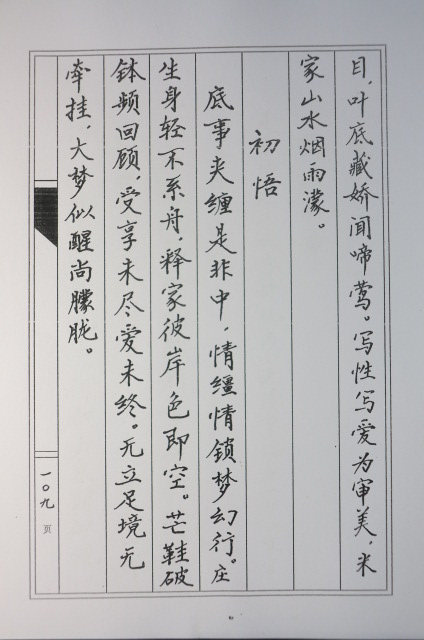 目，叶底藏娇闻啼莺。写性写爱为审美，米
家山水烟雨濛。
初悟
底事夹缠是非中，情缰情锁梦幻行。庄
生身轻不系舟，释家彼岸色即空。芒鞋破
钵频回顾，受享未尽爱未终。无立足境无
牵挂，大梦似醒尚朦胧。
一〇九页